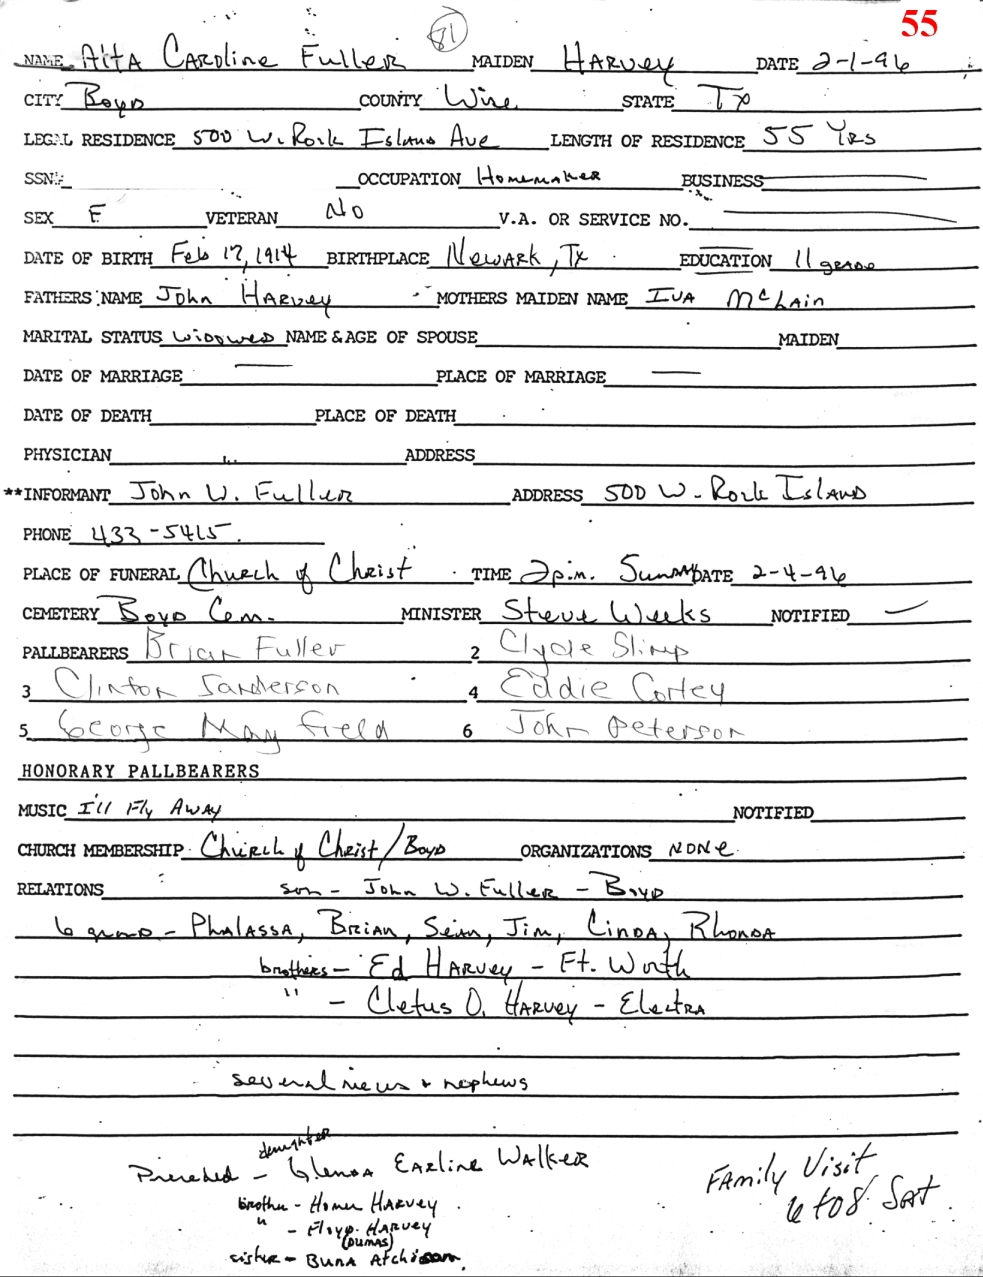 55
81
NAME Alta Caroline Fuller MAIDEN Harvey DATE 2-1-96
CITY Boyd COUNTY Wise STATE Tx
LEGAL RESIDENCE 500 W. Rock Island Ave LENGTH OF RESIDENCE 55 Yrs
SSN: OCCUPATION Homemaker BUSINESS
SEX F VETERAN No V.A. OR SERVICE NO.
DATE OF BIRTH Feb 17, 1914 BIRTHPLACE Newark, Tx EDUCATION 11 grade
FATHERS NAME John Harvey MOTHERS MAIDEN NAME Iva McLain
MARITAL STATUS widowed NAME & AGE OF SPOUSE MAIDEN
DATE OF MARRIAGE PLACE OF MARRIAGE
DATE OF DEATH PLACE OF DEATH
PHYSICIAN ADDRESS
**INFORMANT John W. Fuller ADDRESS 500 W. Rock Island
PHONE 433-5415
PLACE OF FUNERAL Church of Christ TIME 2 p.m. Sunday DATE 2-4-96
CEMETERY Boyd Cem. MINISTER Steve Weeks NOTIFIED
PALLBEARERS Brian Fuller 2 Clyde Slimp
3 Clinton Sanderson 4 Eddie Corley
5 George Mayfield 6 John Peterson
HONORARY PALLBEARERS
MUSIC I'll Fly Away NOTIFIED
CHURCH MEMBERSHIP Church of Christ/Boyd ORGANIZATIONS None
RELATIONS son - John W. Fuller - Boyd
6 grand - Phalassa, Brian, Sean, Jim, Cinda, Rhonda
brothers - Ed Harvey - Ft. Worth
" - Cletus O. Harvey - Electra
several nieces + nephews
daughter
Preceded - Glenda Earline Walker
Family Visit
brother - Homer Harvey
6 to 8 Sat
" - Floyd Harvey
(Dumas)
sister - Buna Atchison